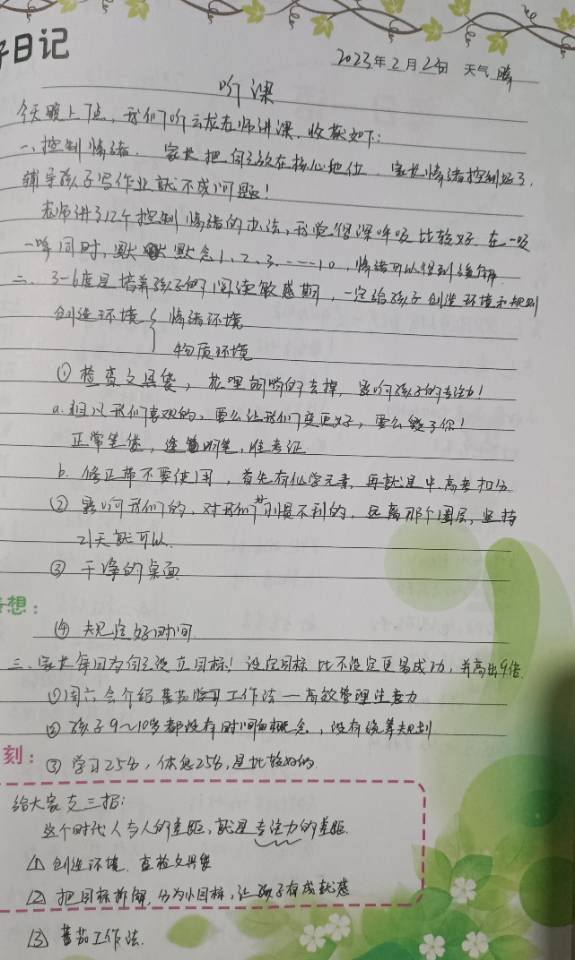 日记
2023年2月2日 天气 晴
听课
今天晚上7点，我们听云龙老师讲课，收获如下：
一、控制情绪，家长把自己放在核心地位，家长情绪控制好了，
辅导孩子写作业就不成问题！
老师讲了12个控制情绪的办法，我觉得深呼吸比较好，在一吸
一呼同时，默默念1、2、3、……10，情绪可以得到缓解。
二、3-6度是培养孩子们阅读敏感期，一定给孩子创造环境和规则
创造环境 { 情绪环境
物质环境
① 检查文具袋，花里胡哨的去掉，影响孩子的专注力！
a. 但凡我们喜欢的，要么让我们变更好，要么毁了你！
正常笔袋，钢笔，准考证
b. 修正带不要使用，首先有化学元素，再就是中高考扣分
② 影响我们的，对我们习惯不利的，远离那个圈层，坚持
21天就可以
③ 干净的桌面
想：
④ 规定好时间
三、家长每日为自己设立目标！设定目标比不设定更易成功，并高出9倍
① 周六会介绍番茄学习工作法—高效管理注意力
② 孩子9～10岁都没有时间的概念，没有统筹规划
刻：
③ 学习25分，休息25分，是比较好的
给大家支三招：
这个时代人与人的差距，就是专注力的差距
① 创造环境，查检文具袋
② 把目标拆解，分为小目标，让孩子有成就感
③ 番茄工作法.